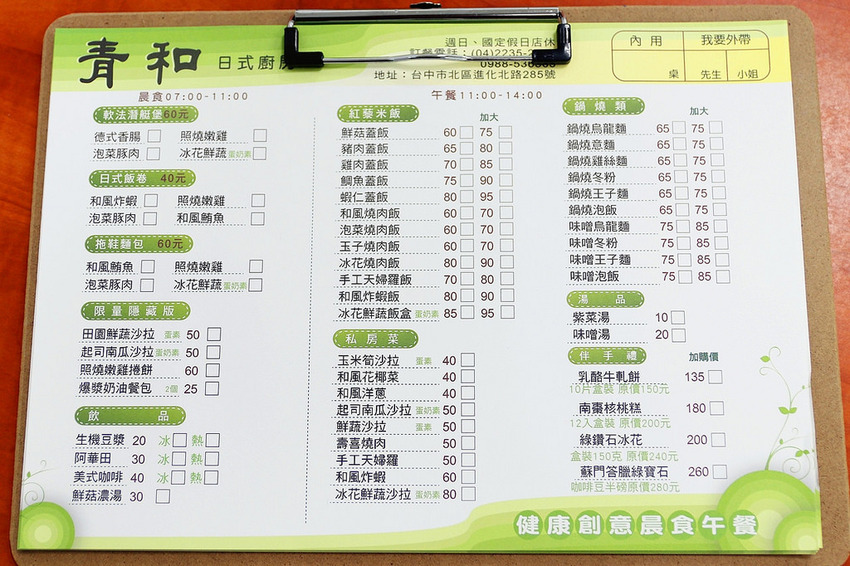 青和 日式廚房
週日、國定假日店休
訂餐電話：(04)2235-2
0988-536
地址：台中市北區進化北路285號
內用 我要外帶
桌 先生 小姐
晨食07:00-11:00
軟法潛艇堡60元
德式香腸 照燒嫩雞
泡菜豚肉 冰花鮮蔬蛋奶素
日式飯卷 40元
和風炸蝦 照燒嫩雞
泡菜豚肉 和風鮪魚
拖鞋麵包 60元
和風鮪魚 照燒嫩雞
泡菜豚肉 冰花鮮蔬蛋奶素
限量隱藏版
田園鮮蔬沙拉 蛋素 50
起司南瓜沙拉蛋奶素 50
照燒嫩雞捲餅 60
爆漿奶油餐包 2個 25
飲品
生機豆漿 20 冰 熱
阿華田 30 冰 熱
美式咖啡 40 冰 熱
鮮菇濃湯 30
午餐11:00-14:00
紅藜米飯 加大
鮮菇蓋飯 60 75
豬肉蓋飯 65 80
雞肉蓋飯 70 85
鯛魚蓋飯 75 90
蝦仁蓋飯 80 95
和風燒肉飯 60 70
泡菜燒肉飯 60 70
玉子燒肉飯 60 70
冰花燒肉飯 80 90
手工天婦羅飯 70 80
和風炸蝦飯 80 90
冰花鮮蔬飯盒蛋奶素 85 95
私房菜
玉米筍沙拉 蛋素 40
和風花椰菜 40
和風洋蔥 40
起司南瓜沙拉蛋奶素 50
鮮蔬沙拉 蛋素 50
壽喜燒肉 50
手工天婦羅 50
和風炸蝦 60
冰花鮮蔬沙拉蛋奶素 80
鍋燒類 加大
鍋燒烏龍麵 65 75
鍋燒意麵 65 75
鍋燒雞絲麵 65 75
鍋燒冬粉 65 75
鍋燒王子麵 65 75
鍋燒泡飯 65 75
味噌烏龍麵 75 85
味噌冬粉 75 85
味噌王子麵 75 85
味噌泡飯 75 85
湯品
紫菜湯 10
味噌湯 20
伴手禮 加購價
乳酪牛軋餅 135
10片盒裝 原價150元
南棗核桃糕 180
12入盒裝 原價200元
綠鑽石冰花 200
盒裝150克 原價240元
蘇門答臘綠寶石 260
咖啡豆半磅原價280元
健康創意晨食午餐